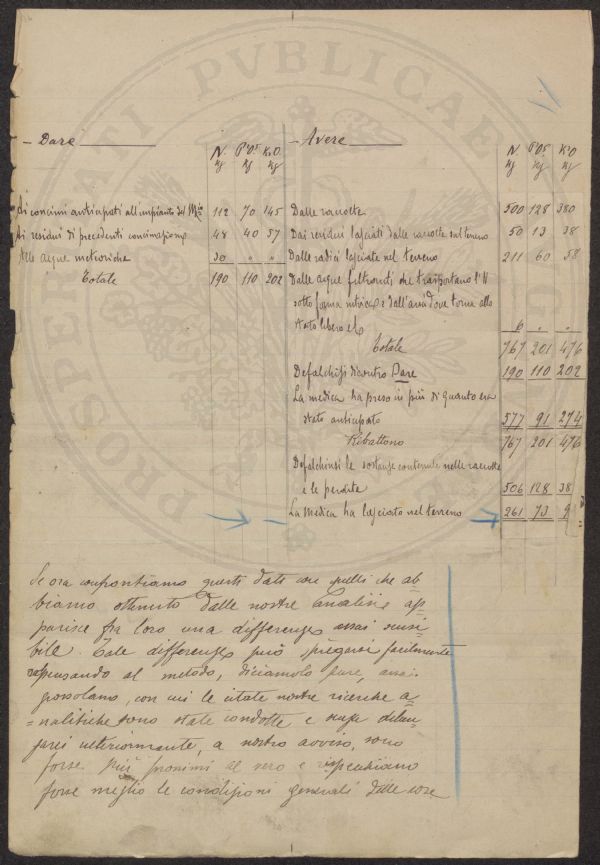 - Dare
N. P²O⁵ K²O
Kg Kg Kg
Ai concimi anticipati all'impianto del M
112 70 145
Ai residui di precedenti concimazione
48 40 57
Alle acque meteoriche
30 " "
Totale
190 110 202
- Avere
N P²O⁵ K²O
Kg Kg Kg
Dalle raccolte
500 128 380
Dai residui lasciati dalle raccolte sul terreno
50 13 38
Dalle radici lasciate nel terreno
211 60 58
Dalle acque filtranti che trasportano l'N
sotto forma nitrica e dall'aria dove torna allo
stato libero
6 " "
Totale
767 201 476
Defalchisi di contro Dare
190 110 202
La medica ha preso in più di quanto era
stato anticipato
577 91 274
Ribattono
767 201 476
Defalchinsi le sostanze contenute nelle raccolte
e le perdite
506 128 38
La medica ha lasciato nel terreno
261 73 9
Se ora confrontiamo questi dati con quelli che ab
biamo ottenuto dalle nostre analisi ap
parisce fra loro una differenza assai sensi
bile. Tale differenza può spiegarsi facilmente
ripensando al metodo, diciamolo pure, assai
grossolano, con cui le citate nostre ricerche a=
=nalitiche sono state condotte e senza dilun
garci ulteriormente, a nostro avviso, sono
forse più prossimi al vero e rispecchiano
forse meglio le condizioni generali delle cose